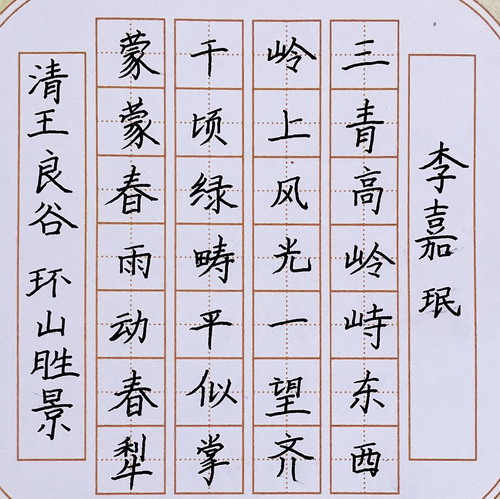 李嘉珉
三青高岭峙东西
岭上风光一望齐
千顷绿畴平似掌
蒙蒙春雨动春犁
清王良谷 环山胜景